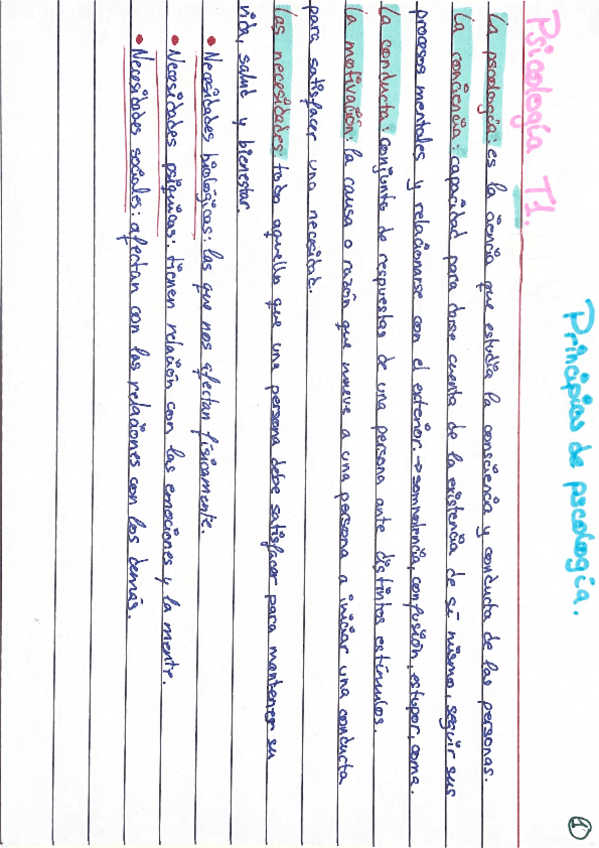 Principios de psicología.
①
Psicología T1.
La psicología: es la ciencia que estudia la consciencia y conducta de las personas.
La conciencia: capacidad para darse cuenta de la existencia de sí mismo, seguir sus
procesos mentales y relacionarse con el exterior. → somnolencia, confusión, estupor, coma.
La conducta: conjunto de respuestas de una persona ante distintos estímulos.
La motivación: la causa o razón que mueve a una persona a iniciar una conducta
para satisfacer una necesidad.
Las necesidades: todo aquello que una persona debe satisfacer para mantener su
vida, salud y bienestar.
• Necesidades biológicas: las que nos afectan físicamente.
• Necesidades psíquicas: tienen relación con las emociones y la mente.
• Necesidades sociales: afectan con las relaciones con los demás.